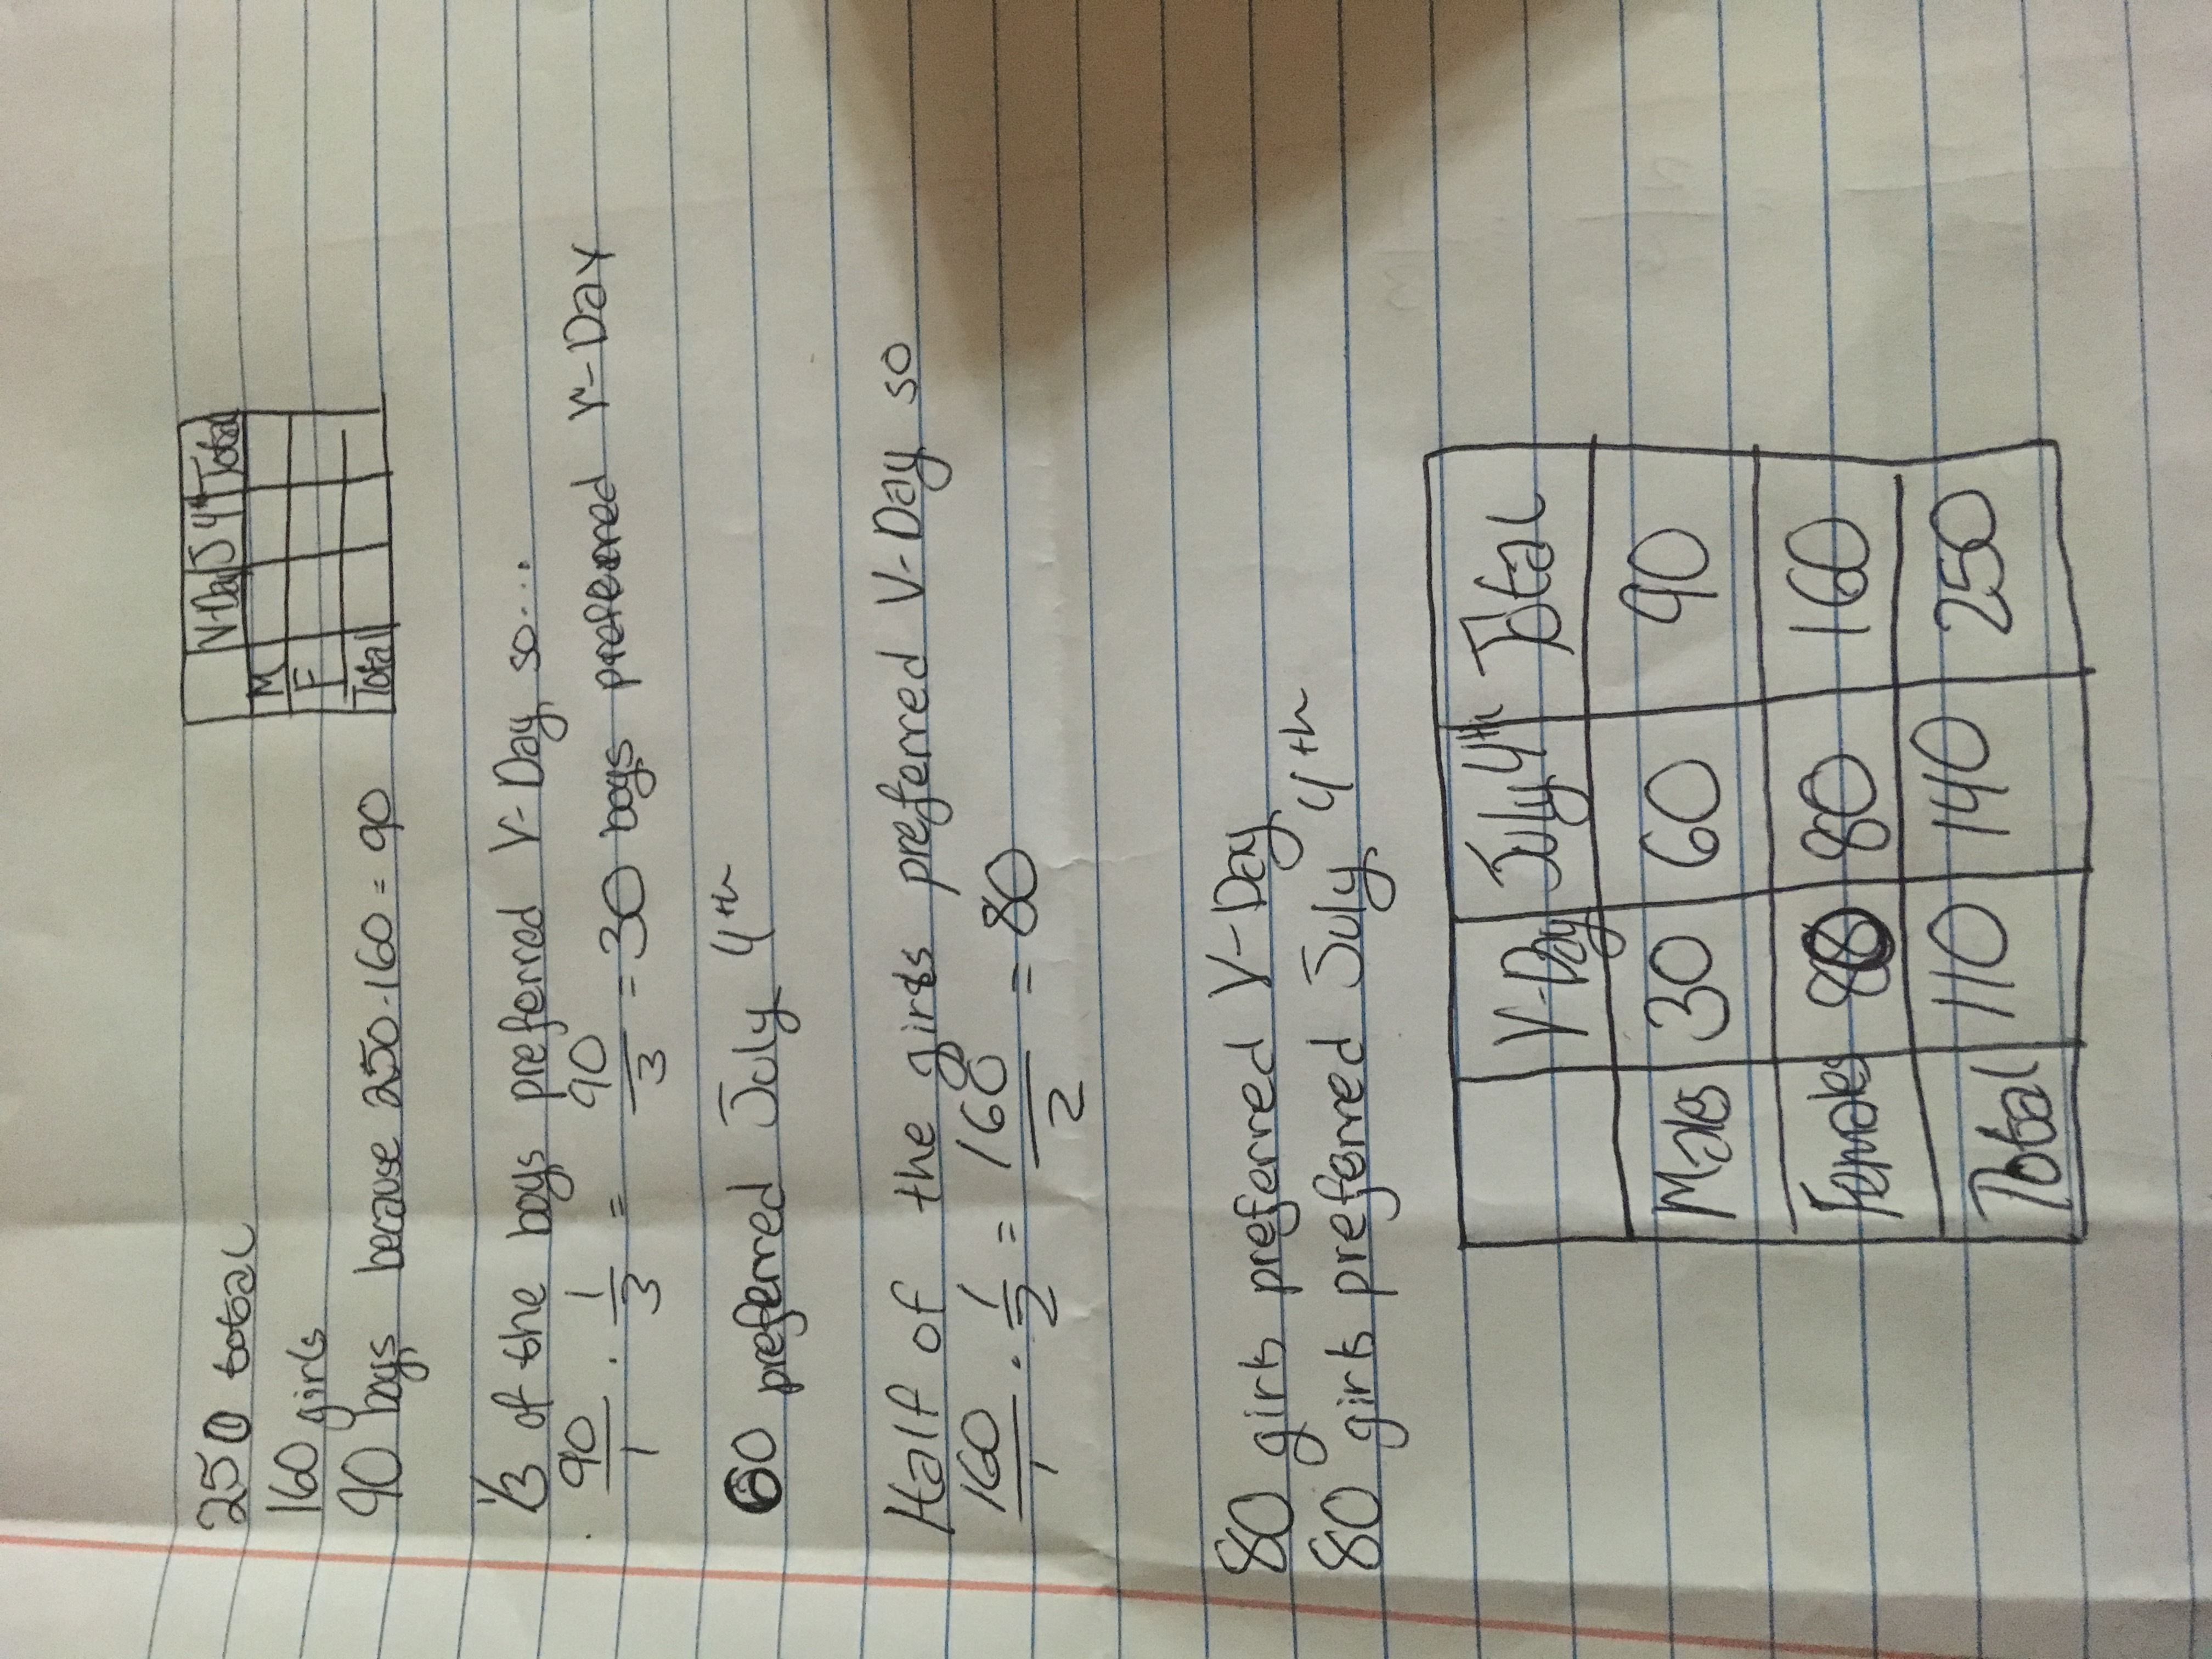 250 total
160 girls
90 boys because 250-160=90
V-Day J 4th Total
M
F
Total
1/3 of the boys preferred V-Day, so...
90/1 · 1/3 = 90/3 = 30 boys preferred V-Day
60 preferred July 4th
Half of the girls preferred V-Day so
160/1 · 1/2 = 160/2 = 80
80 girls preferred V-Day
80 girls preferred July 4th
V-Day July 4th Total
Males 30 60 90
Females 80 80 160
Total 110 140 250